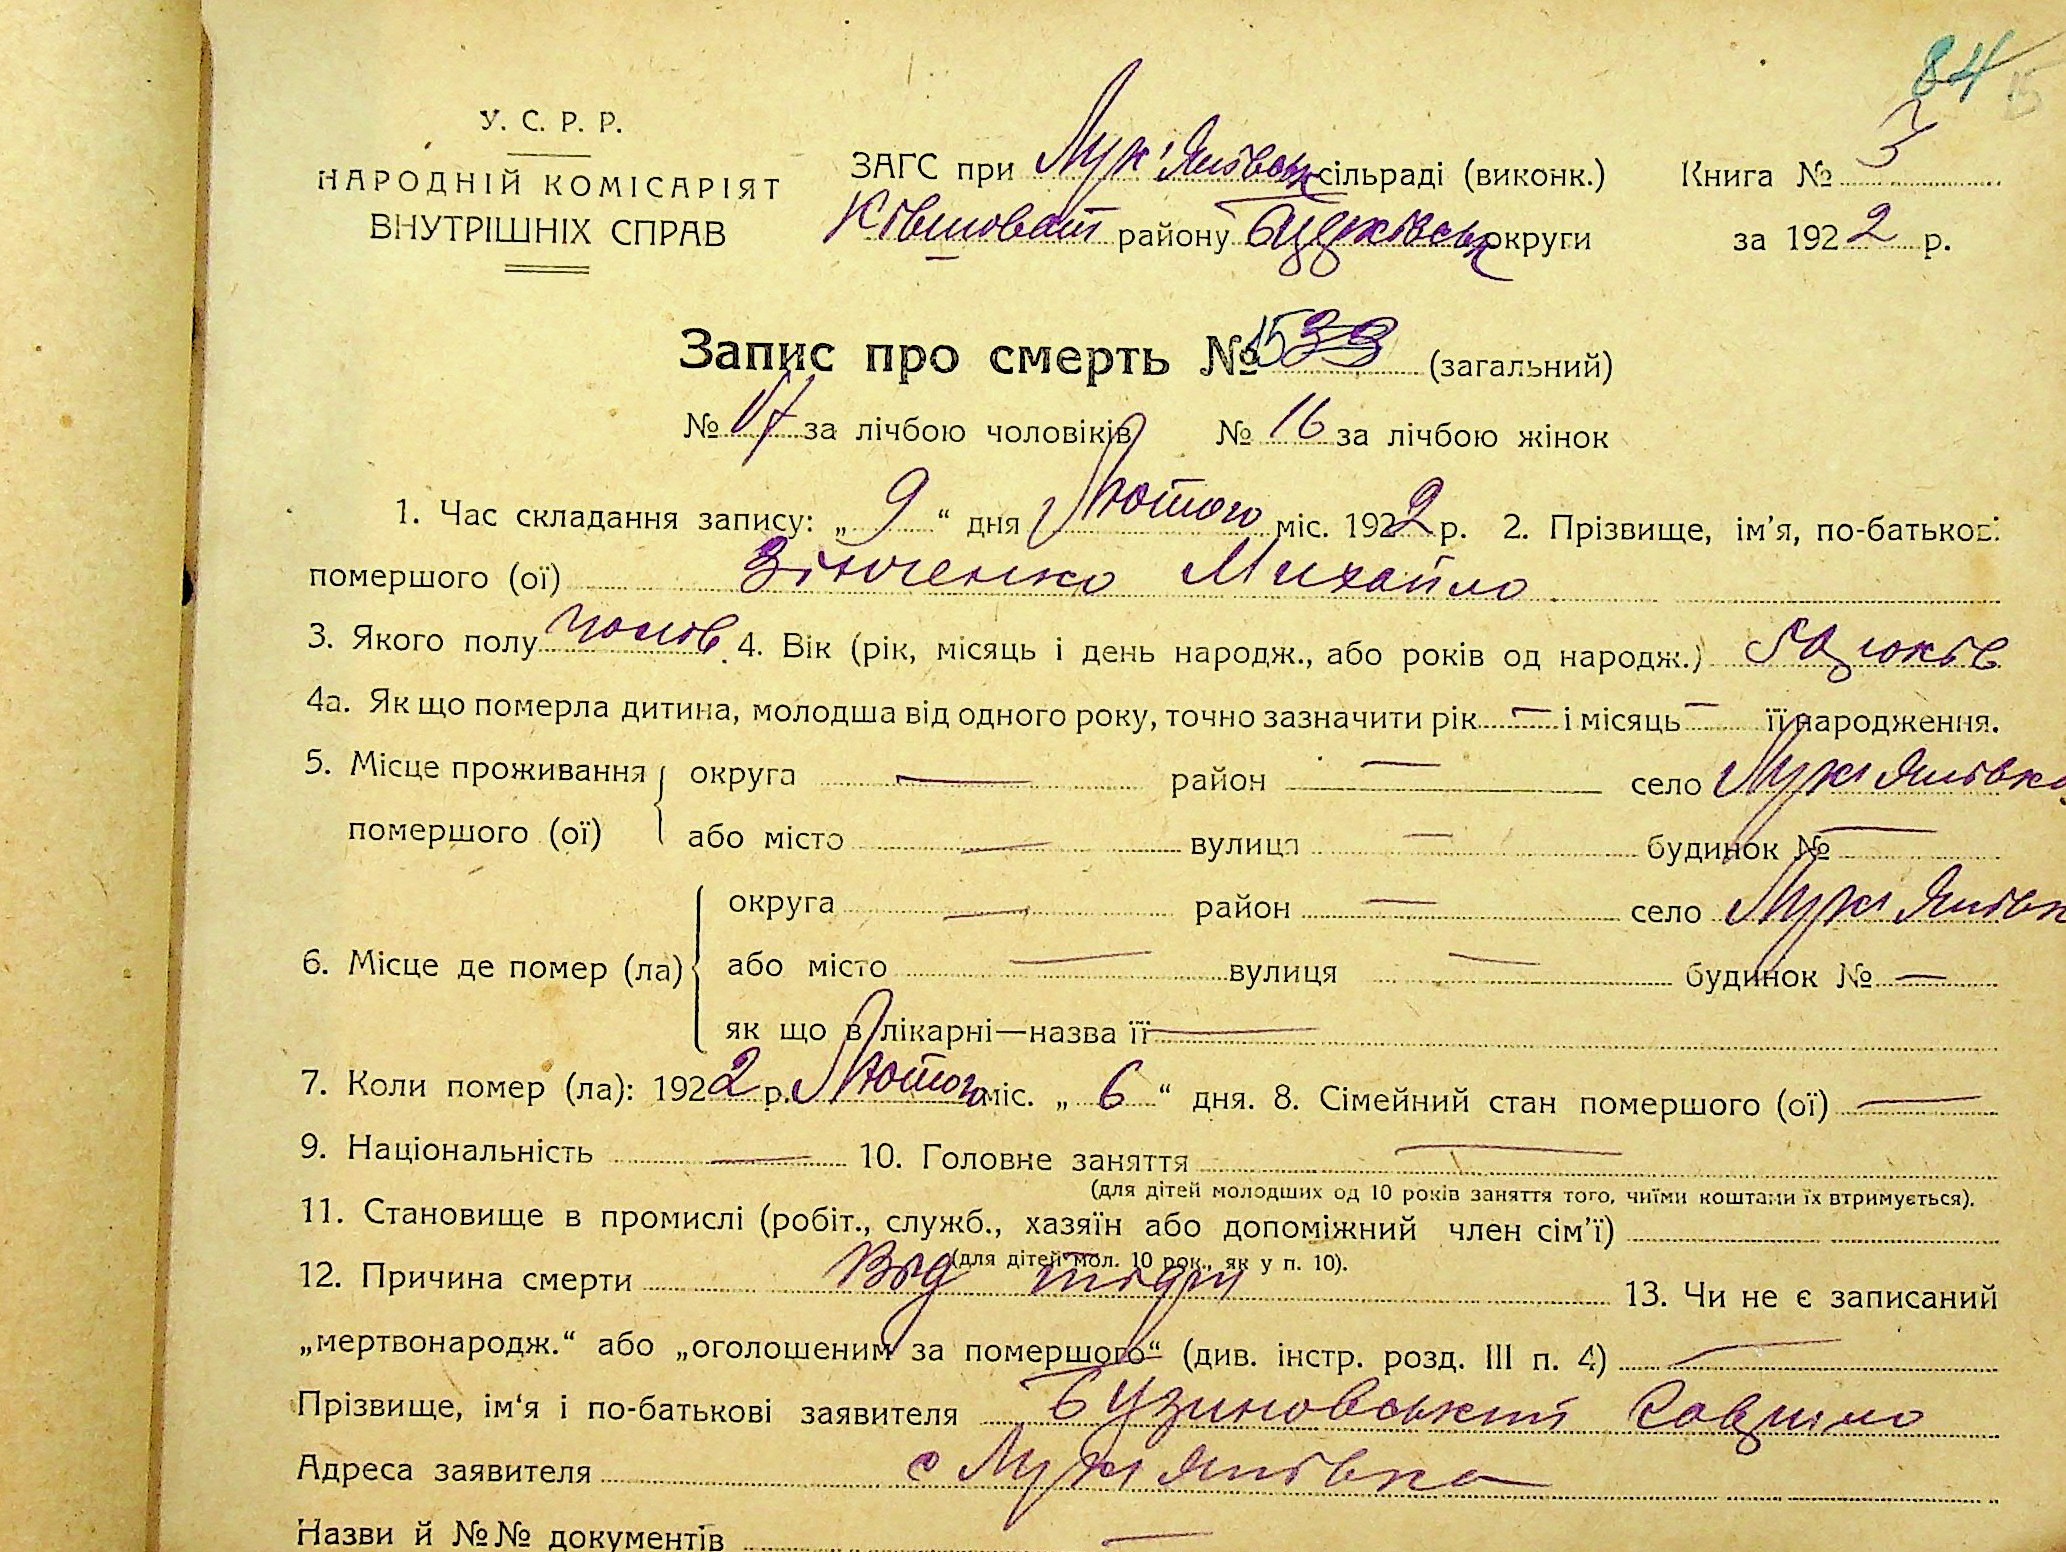 84
15
У. С. Р. Р.
НАРОДНІЙ КОМІСАРІЯТ
ВНУТРІШНІХ СПРАВ
ЗАГС при Лук'янівськ сільраді (виконк.)
Книга № 3
Ківшоват району округи
за 1922 р.
Запис про смерть № (загальний)
№ 17 за лічбою чоловіків № 16 за лічбою жінок
1. Час складання запису: „ 9 “ дня Лютого міс. 1922 р. 2. Прізвище, ім'я, по-батькові
помершого (ої) Зінченко Михайло
3. Якого полу чолов. 4. Вік (рік, місяць і день народж., або років од народж.)
4а. Як що померла дитина, молодша від одного року, точно зазначити рік — і місяць — її народження.
5. Місце проживання округа — район — село Лук'янівка
помершого (ої) або місто — вулиця — будинок № —
округа — район — село Лук'янівк
6. Місце де помер (ла) або місто — вулиця — будинок № —
як що в лікарні—назва її —
7. Коли помер (ла): 1922 р. Лютого міс. „ 6 “ дня. 8. Сімейний стан помершого (ої) —
9. Національність — 10. Головне заняття —
(для дітей молодших од 10 років заняття того, чиїми коштами їх втримується).
11. Становище в промислі (робіт., служб., хазяїн або допоміжний член сім'ї)
(для дітей мол. 10 рок., як у п. 10).
12. Причина смерти Від 13. Чи не є записаний
„мертвонародж.“ або „оголошеним за помершого“ (див. інстр. розд. III п. 4) —
Прізвище, ім'я і по-батькові заявителя Бузиновський
Адреса заявителя с Лук'янівка
Назви й №№ документів —